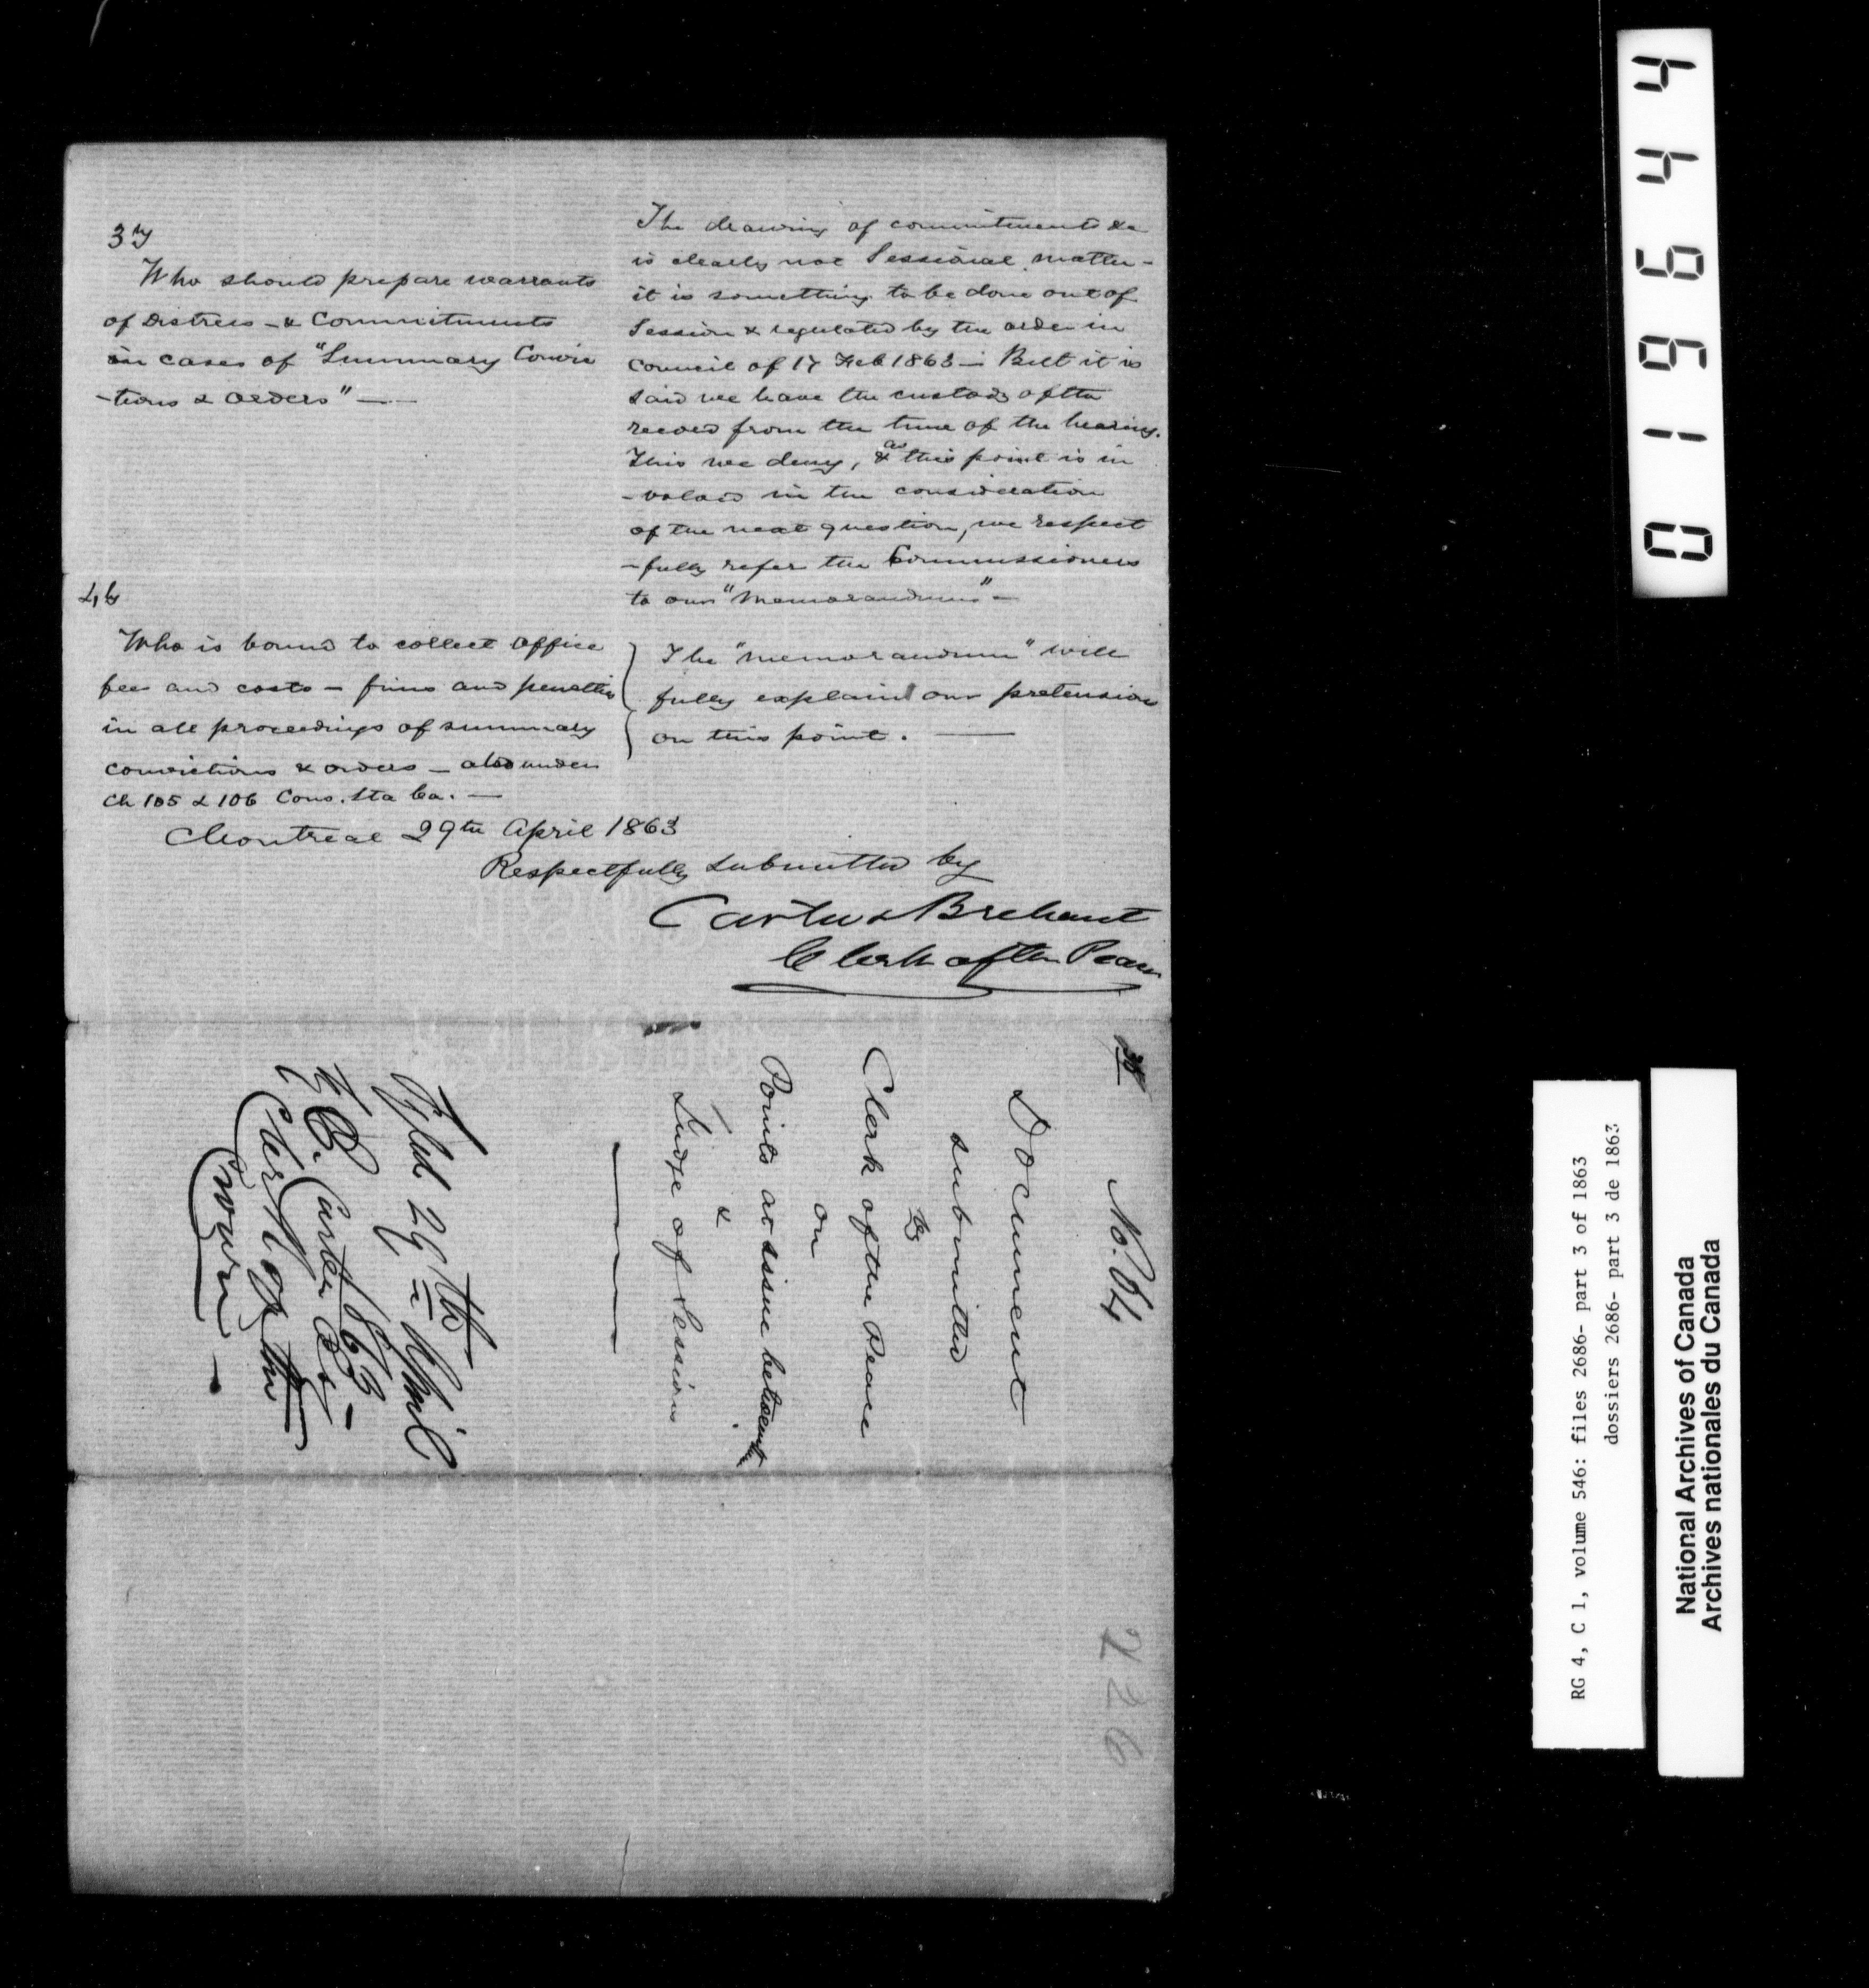 3ly
Who should prepare warrants
of Distress - & Commitments
in cases of "Summary Convic
-tions & orders" —
The drawing of commitments &c
is clearly not Sessional matter -
it is something to be done out of
Session & regulated by the order in
Council of 17 Feb 1863 — But it is
said we have the custody of the
record from the time of the hearing.
This we deny, & as this point is in
-volved in the consideration
of the next question, we respect
-fully refer the Commissioners
to our "Memorandum" -
4ly
Who is bound to collect office
fees and costs - fines and penalties
in all proceedings of summary
convictions & orders - also under
Ch 105 & 106 Cons. Sta Ca. —
The "Memorandum" will
fully explain our pretensions
on this point. —
Montreal 29th April 1863
Respectfully submitted by
Carter & Brehaut
Clerk of the Peace
No. 64
Document
submitted
by
Clerk of the Peace
on
Points at issue between
&
Judge of Sessions
Fyled 29th April
1863 -
Carter
Clerk of the
Crown -
226
019644
RG 4, C 1, volume 546: files 2686- part 3 of 1863
dossiers 2686- part 3 de 1863
National Archives of Canada
Archives nationales du Canada